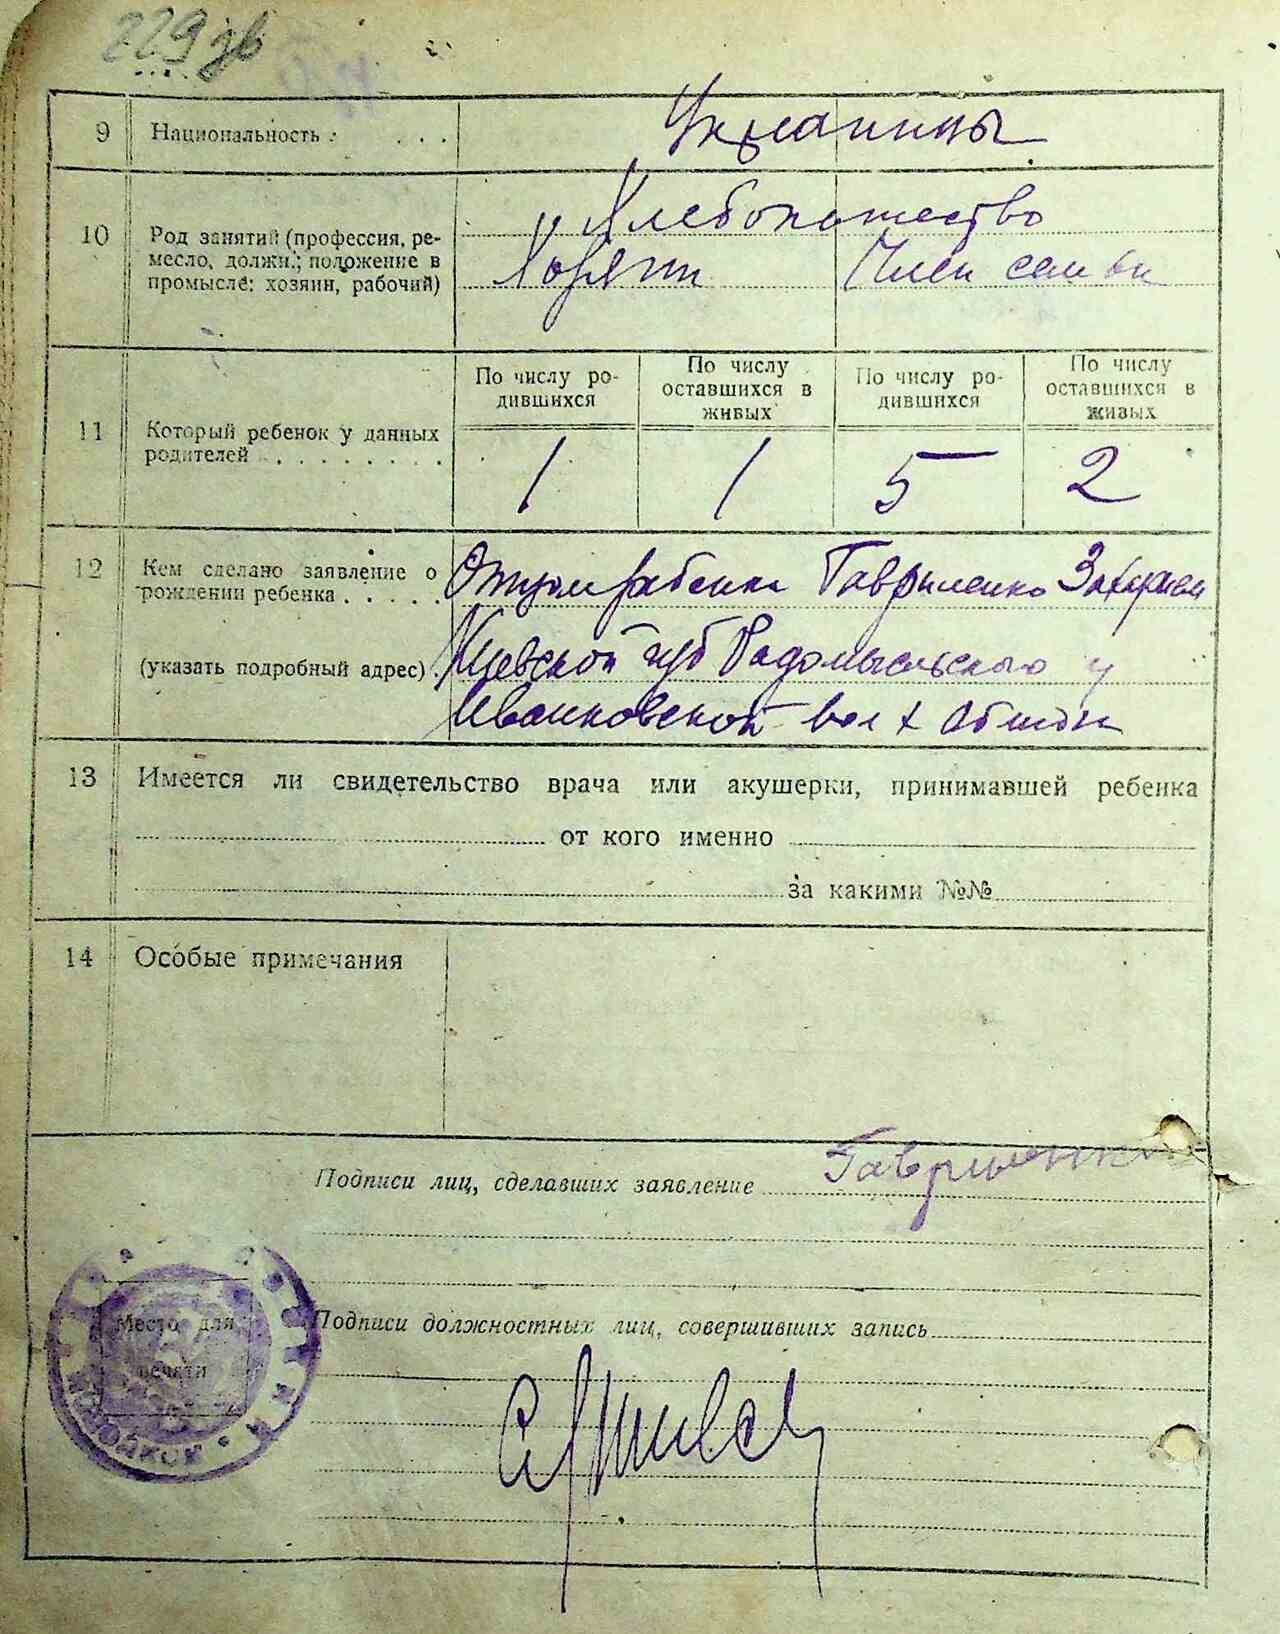 229 зв
9 Национальность : . . . Украинцы
10 Род занятий (профессия, ре-
месло, должн.; положение в
промысле: хозяин, рабочий)
Хлебопашество
Член семьи
По числу ро-
дившихся
По числу
оставшихся в
живых
По числу ро-
дившихся
По числу
оставшихся в
живых
11 Который ребенок у данных
родителей . . . . . . . .
1 1 5 2
12 Кем сделано заявление о
рождении ребенка . . . . .
(указать подробный адрес) .
Отцом ребенка Гавриленко Захарием
Киевской губ Радомысльского у
Иванковской вол х
13 Имеется ли свидетельство врача или акушерки, принимавшей ребенка
от кого именно
за какими №№
14 Особые примечания
Подписи лиц, сделавших заявление Гавриленко
Подписи должностных лиц, совершивших запись
Место для
печати